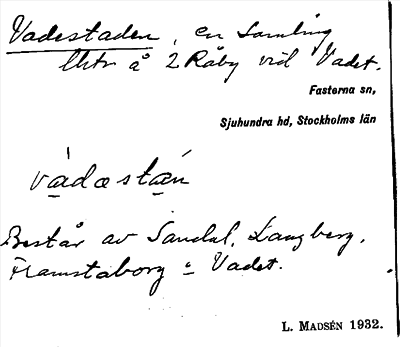 Vadestaden, en samling
lhtr å 2 Råby vid Vadet.
Fasterna sn,
Sjuhundra hd, Stockholms län
vàdastán
Består av Sandal, Langberg,
Framstaborg o Vadet.
L. MADSÉN 1932.